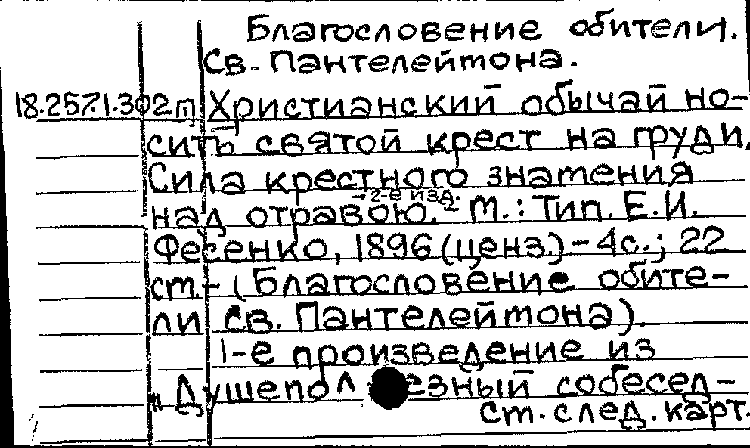 Благословение обители.
Св. Пантелеймона.
18.257.1.302 п Христианский обычай но-
сить святой крест на груди.
Сила крестного знамения
над отравою. – 2-е изд. – М.: Тип. Е.И.
Фесенко, 1896 (ценз.) – 4с.; 22
ст. – (Благословение обите-
ли св. Пантелеймона).
1-е произведение из
"Душепол езный собесед-
см. след. карт.